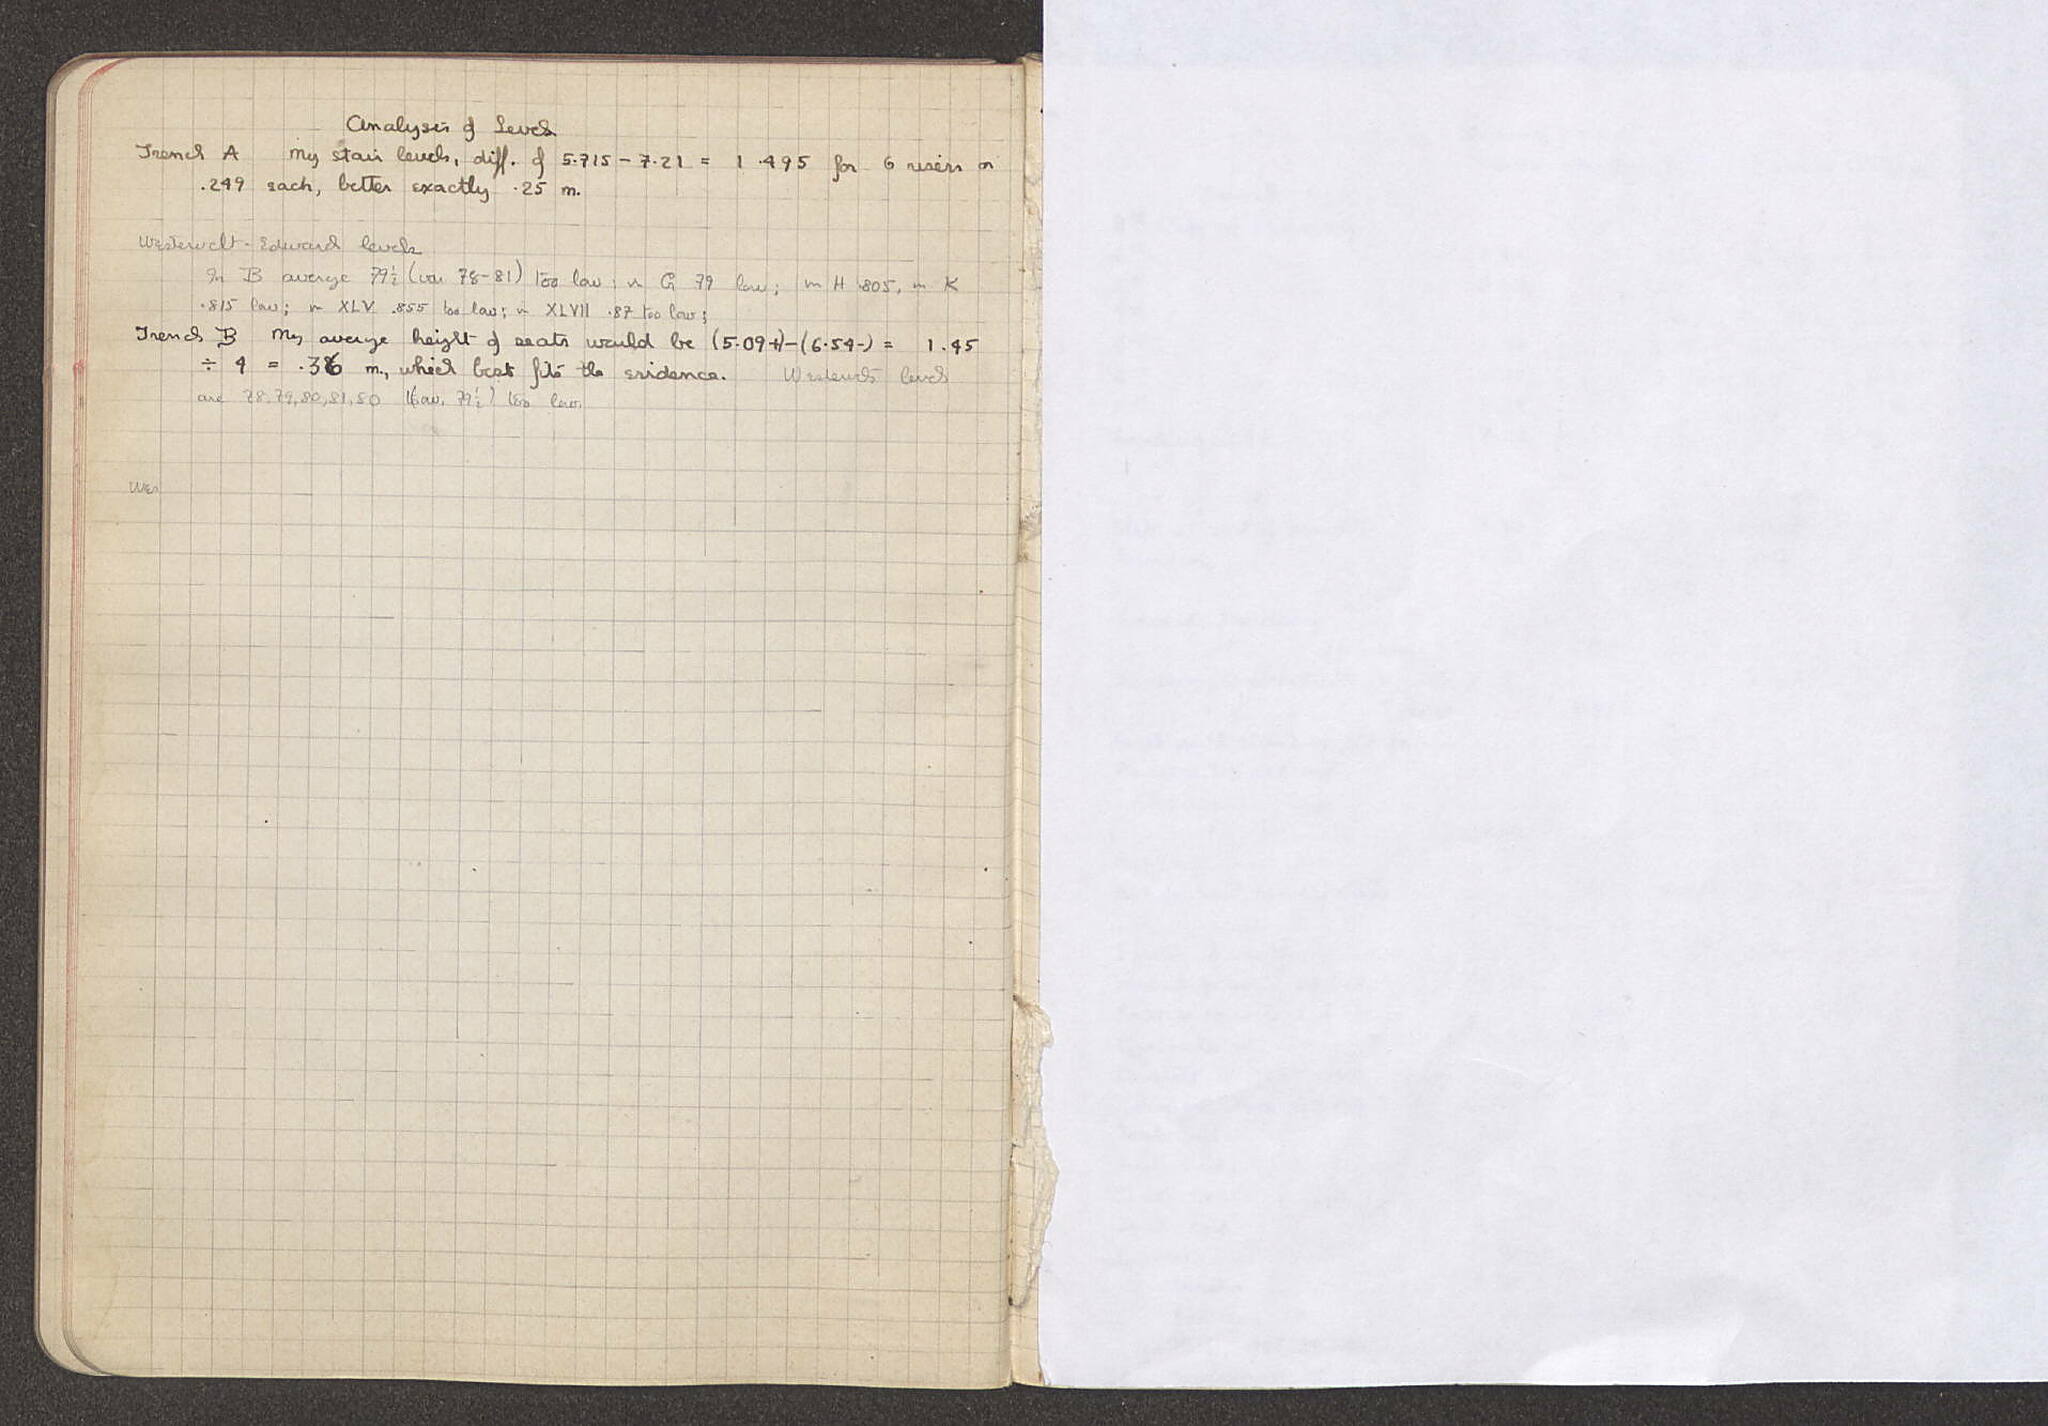 Analysis of Levels
Trench A My stair levels, diff. of 5.715 - 7.21 = 1.495 for 6 risers or
.249 each, better exactly .25 m.
Westervelt-Edward levels
In B average 79½ (var 78-81) too low; in G 79 low; in H .805, in K
.815 low; in XLV .855 too low; in XLVII .87 too low;
Trench B My average height of seats would be (5.09+)-(6.54-) = 1.45
÷ 4 = .36 m., which best fits the evidence. levels
are 78, 79, 80, 81, 80 (av. 79½) too low.
Wes